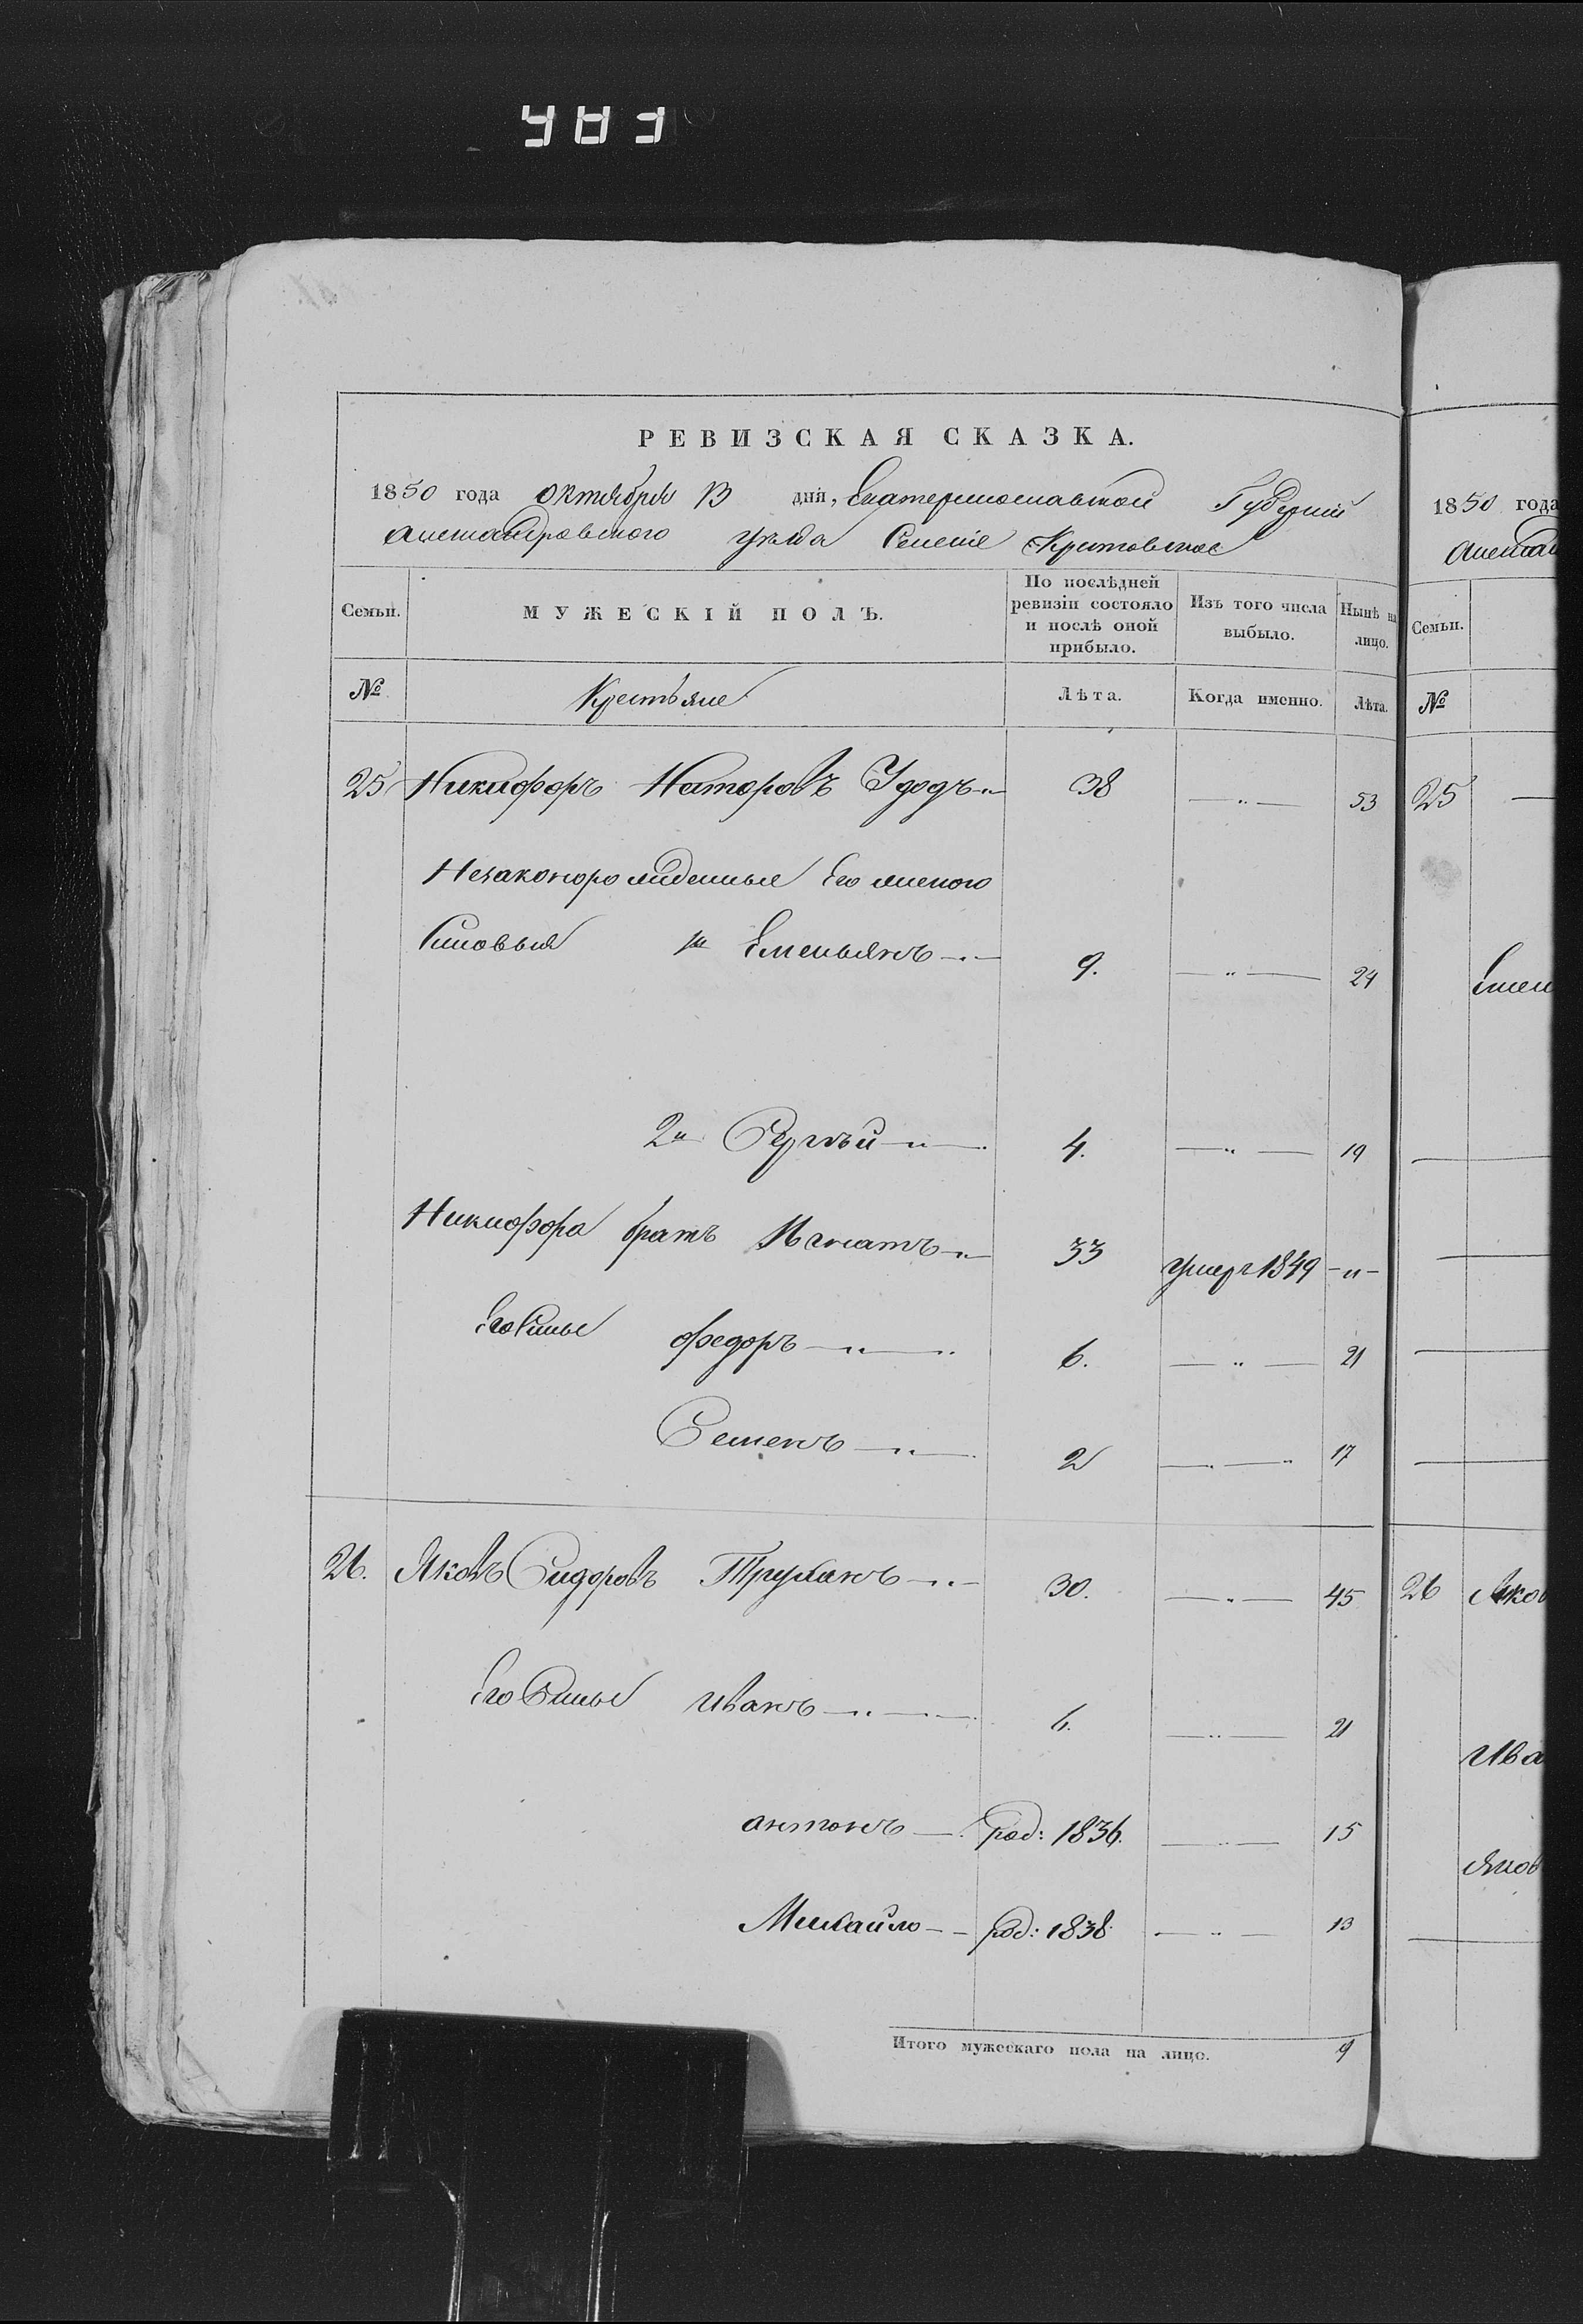 483
РЕВИЗСКАЯ СКАЗКА.
1850 года Октября 13 дня, Екатеринославской Губерніи
Александровского уезда Селеніе
Семьи.
МУЖЕСКІЙ ПОЛЪ.
По послѣдней ревизіи состояло и послѣ оной прибыло.
Изъ того числа выбыло.
Нынѣ на лицо.
№
Крестьяне
Лѣта.
Когда именно.
Лѣта.
25 Никифоръ Удодъ 38 — " — 53
Незаконорожденныя Его
Сыновья 1й Емельянъ 9. — " — 24
2й Сергѣй 4. — " — 19
Никифора братъ Игнатъ 33 умеръ 1849 — " —
Его Сыны Федоръ 6. — " — 21
Семенъ 2 — " — 17
26. Яковъ Сидоровъ Труханъ 30. — " — 45
Его Сыны Иванъ 6. — " — 21
антонъ род: 1836. — " — 15
Михайло род: 1838. — " — 13
Итого мужескаго пола на лицо. 9
1850 года
Семьи.
№
25
26 Яков
Ива
Яков